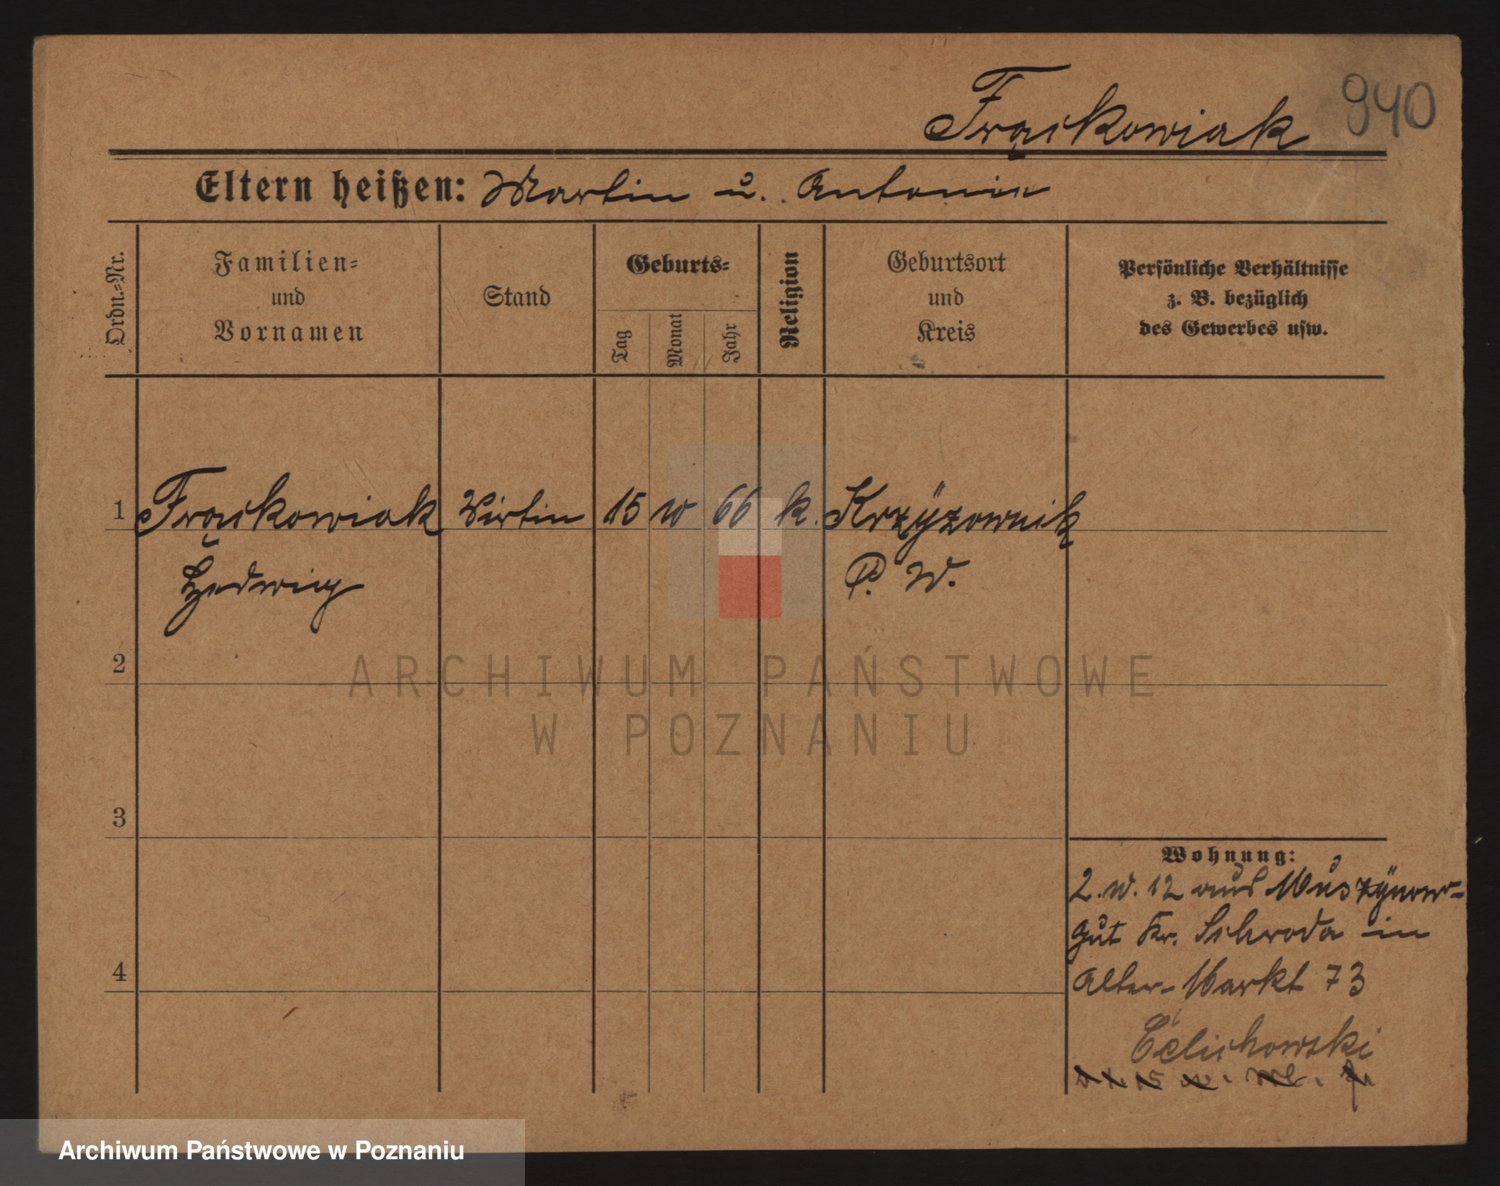 Frąckowiak 940
Eltern heißen: Martin u. Antonie
Ordn.-Nr.
Familien-
und
Vornamen
Stand
Geburts-
Tag
Monat
Jahr
Religion
Geburtsort
und
Kreis
Persönliche Verhältnisse
z. B. bezüglich
des Gewerbes usw.
1 Frąckowiak Wirtin 15 10 66 k. Krzyżownik
Hedwig P. W.
2
3
4
Wohnung:
2. 10. 12 aus Muszynow-
gut Kr. Schroda in
Alter-Markt 73
Celichowski
ARCHIWUM PAŃSTWOWE
W POZNANIU
Archiwum Państwowe w Poznaniu